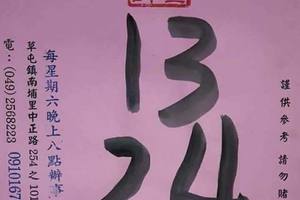 謹供參考 請勿賭
13
24
每星期六晚上八點辦事
草屯鎮南埔里中正路 254 之 101
電：(049) 2568223 0910167